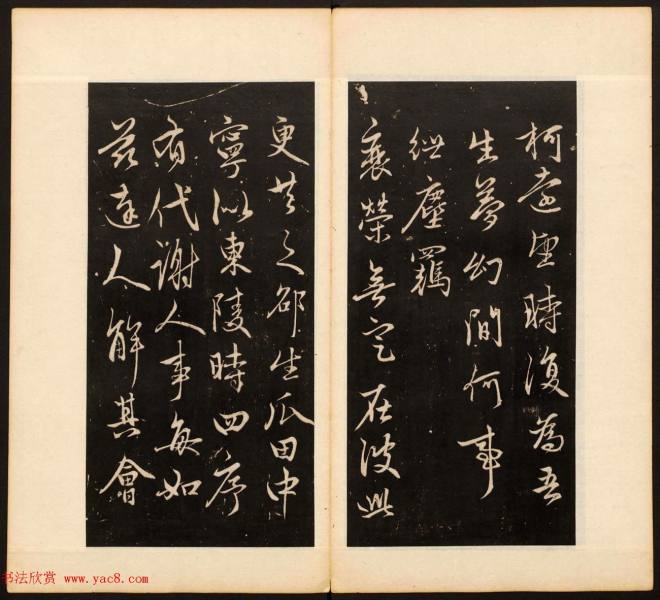 柯遠望時復為吾
生夢幻間何事
紲塵羈
衰榮無定在彼此
更共之邵生瓜田中
寧似東陵時四序
有代謝人事每如
茲達人解其會
书法欣赏 www.yac8.com